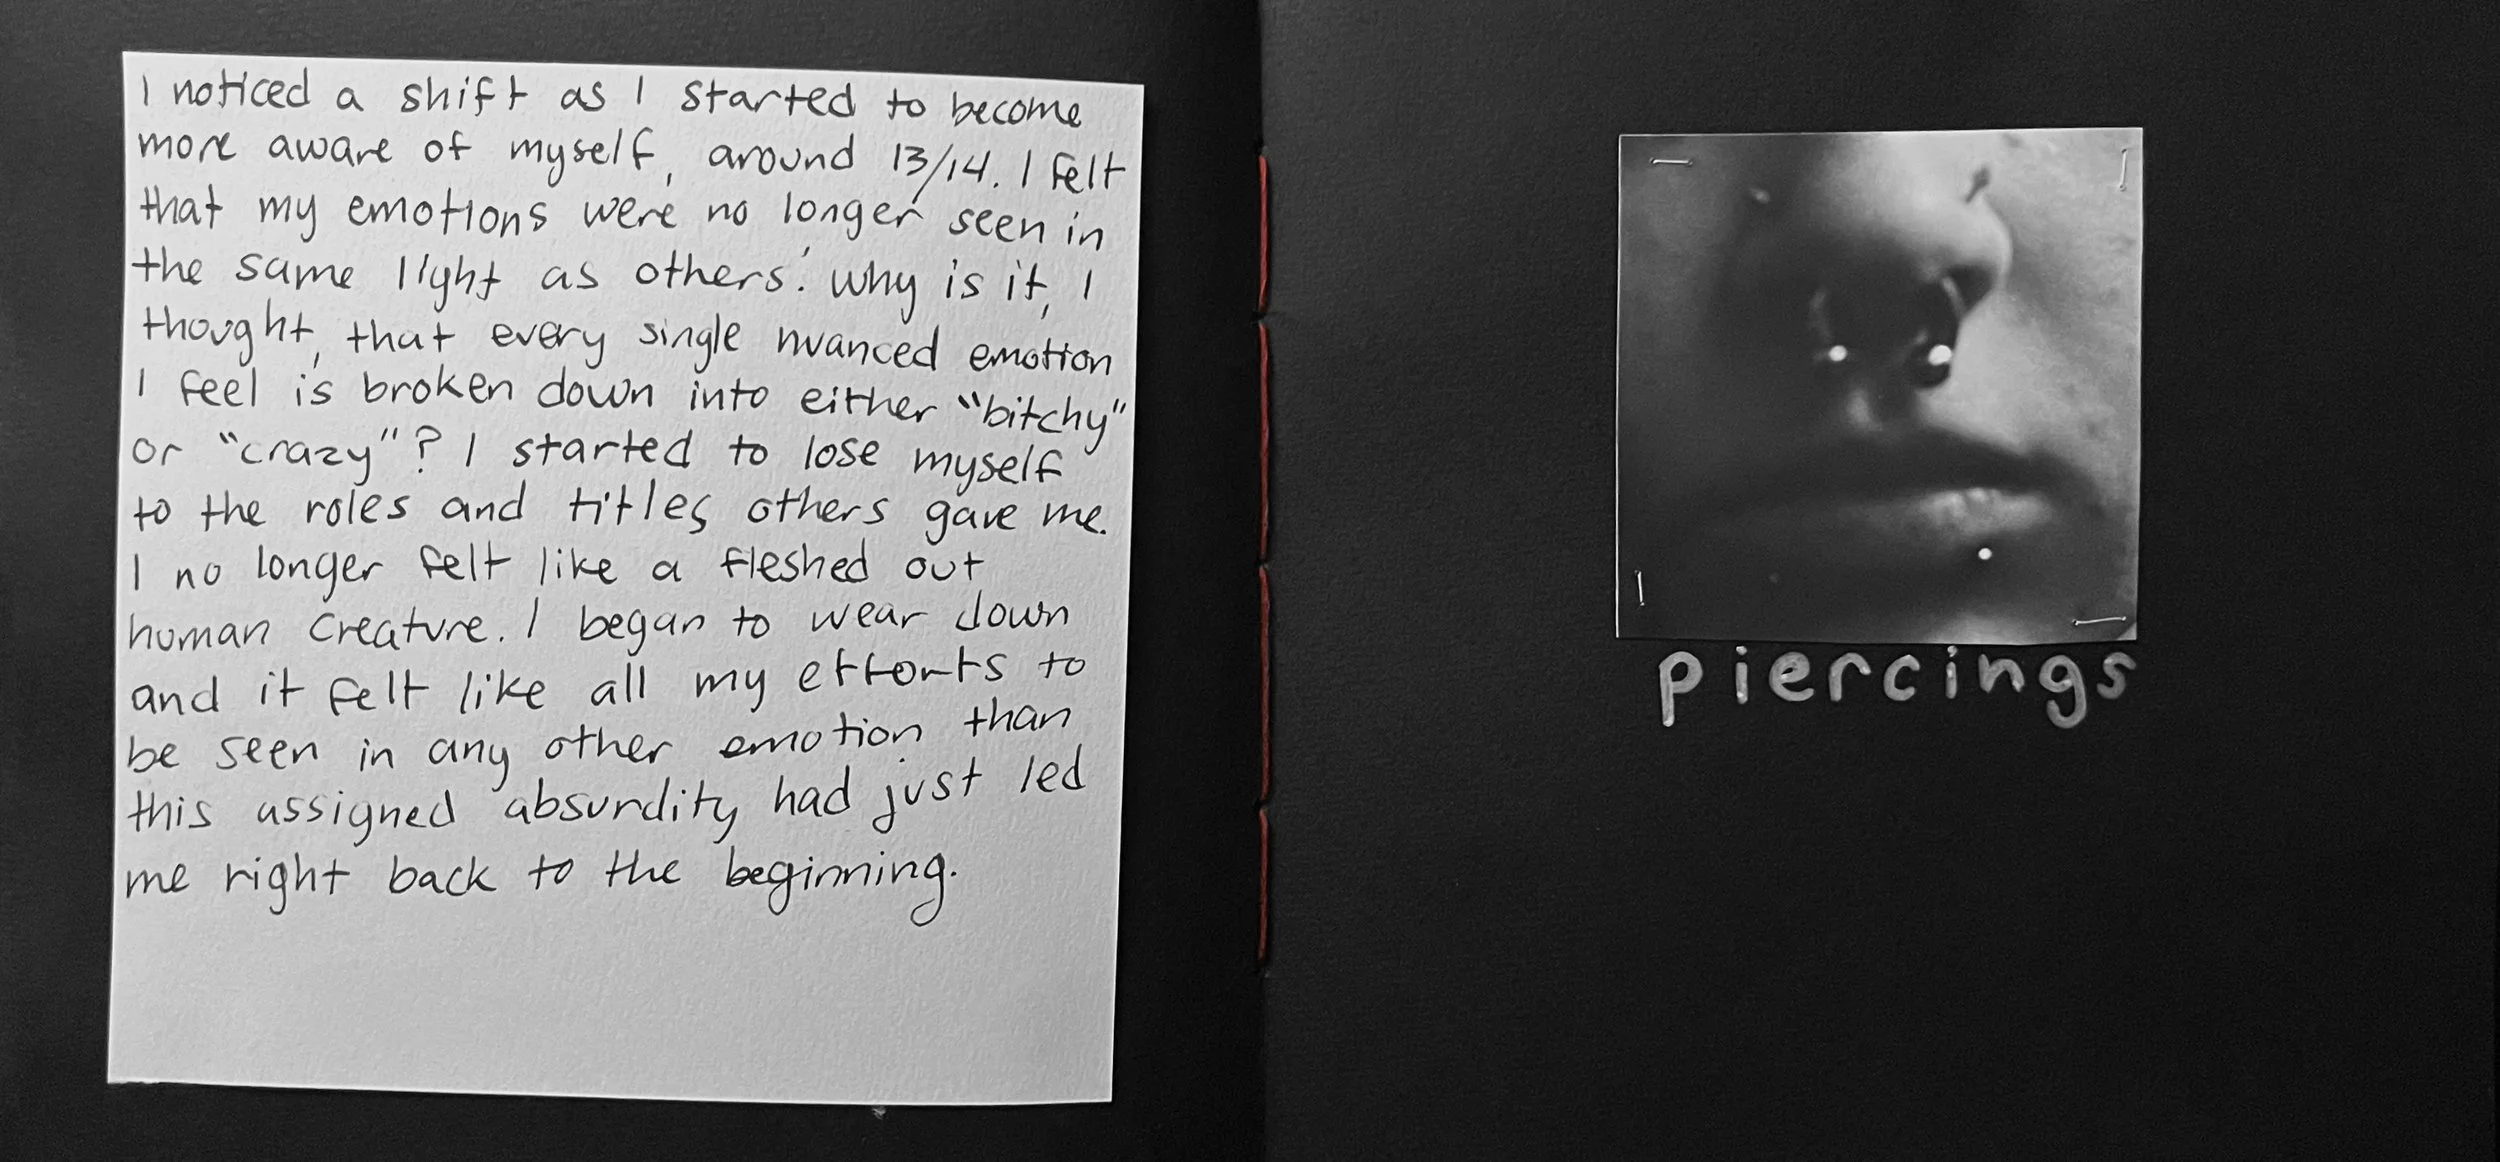 I noticed a shift as I started to become
more aware of myself, around 13/14. I felt
that my emotions were no longer seen in
the same light as others'. Why is it, I
thought, that every single nuanced emotion
I feel is broken down into either "bitchy"
or "crazy"? I started to lose myself
to the roles and titles others gave me.
I no longer felt like a fleshed out
human creature. I began to wear down
and it felt like all my efforts to
be seen in any other emotion than
this assigned absurdity had just led
me right back to the beginning.
piercings